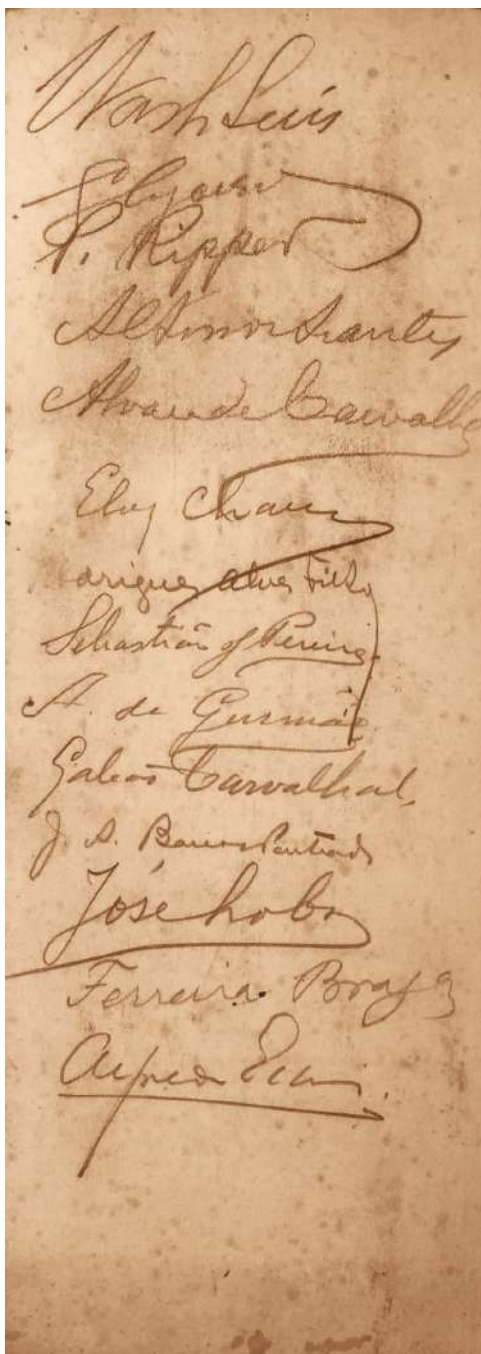 Wash Luis
Glycerio
P. Ripper
Altino Arantes
Alvaro de Carvalho
Eloy Chaves
odrigues Alves Filho
Sebastião de Pereira
A. de Gusmão
Galeão Carvalhal
J. A. Barros Penteado
José Lobo
Ferreira Braga
Alfredo